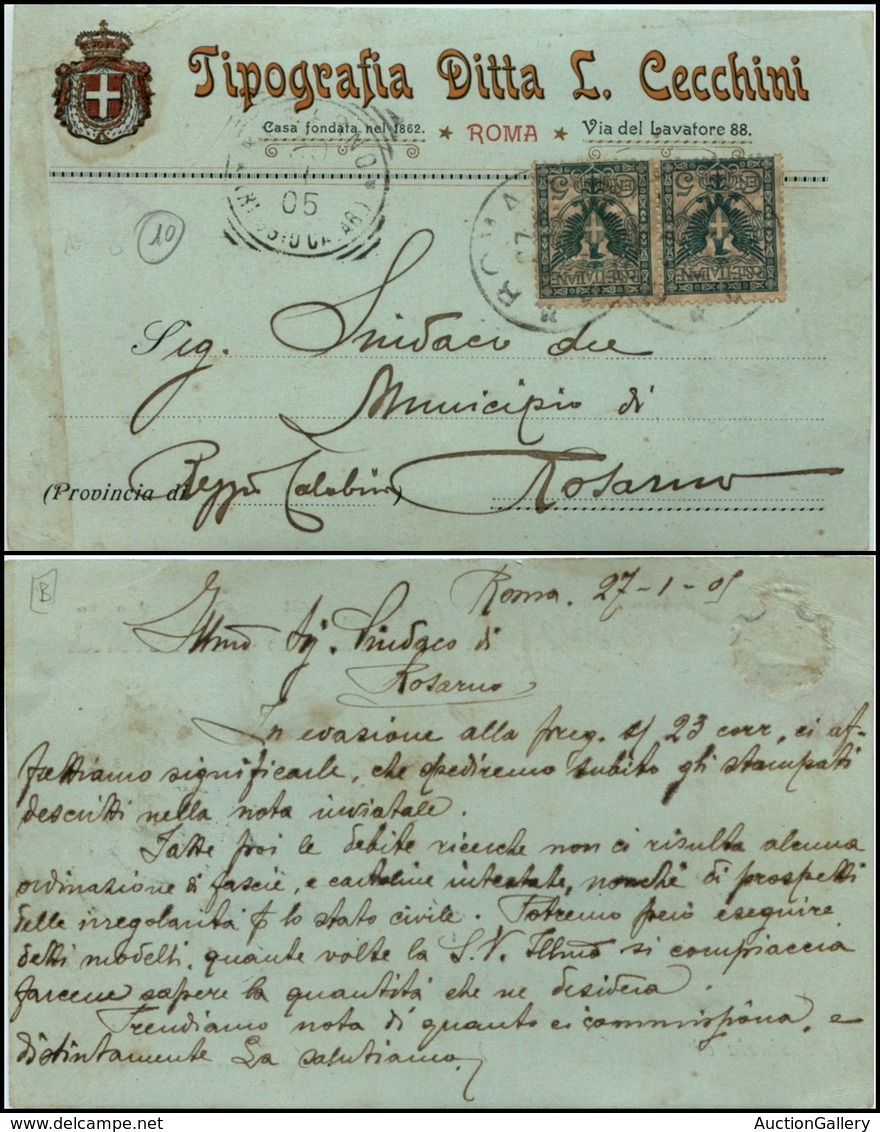 Tipografia Ditta L. Cecchini
Casa fondata nel 1862. ★ ROMA ★ Via del Lavatore 88.
05
ROMA
10
Sig. Sindaco del
Municipio di
(Provincia di Reggio Calabria) Rosarno
B
Roma. 27-1-05
Illmo Sig. Sindaco di
Rosarno
In evasione alla preg. s/ 23 corr, ci af-
frettiamo significarle, che spediremo subito gli stampati
descritti nella nota inviatale.
Fatte poi le debite ricerche non ci risulta alcuna
ordinazione di fascie, e cartoline intestate, nonchè di prospetti
delle irregolarità lo stato civile. Potremo però eseguire
detti modelli, quante volte la S.V. Illmo si compiaccia
farcene sapere la quantità che ne desidera.
Prendiamo nota di quanto ci commissiona, e
distintamente La salutiamo
AuctionGallery